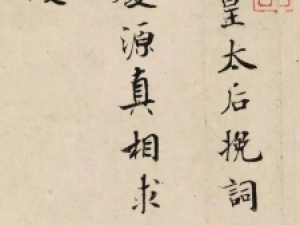 皇太后挽詞
源真相求